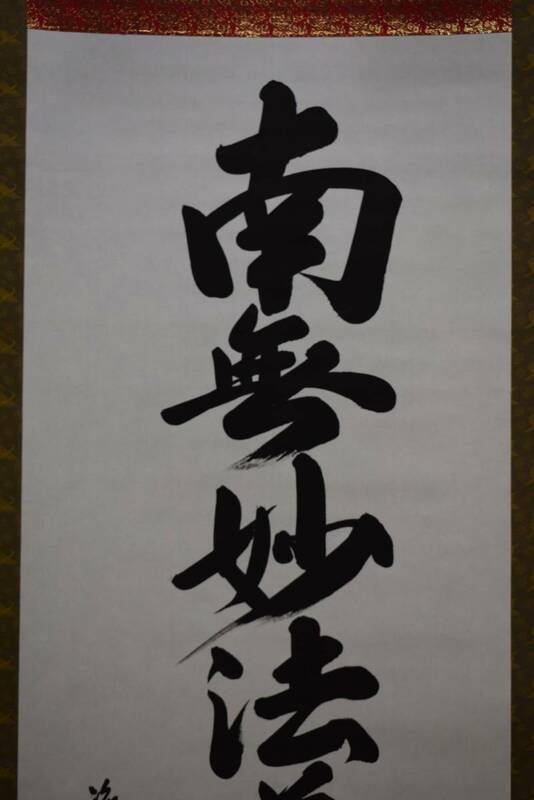 南無妙法